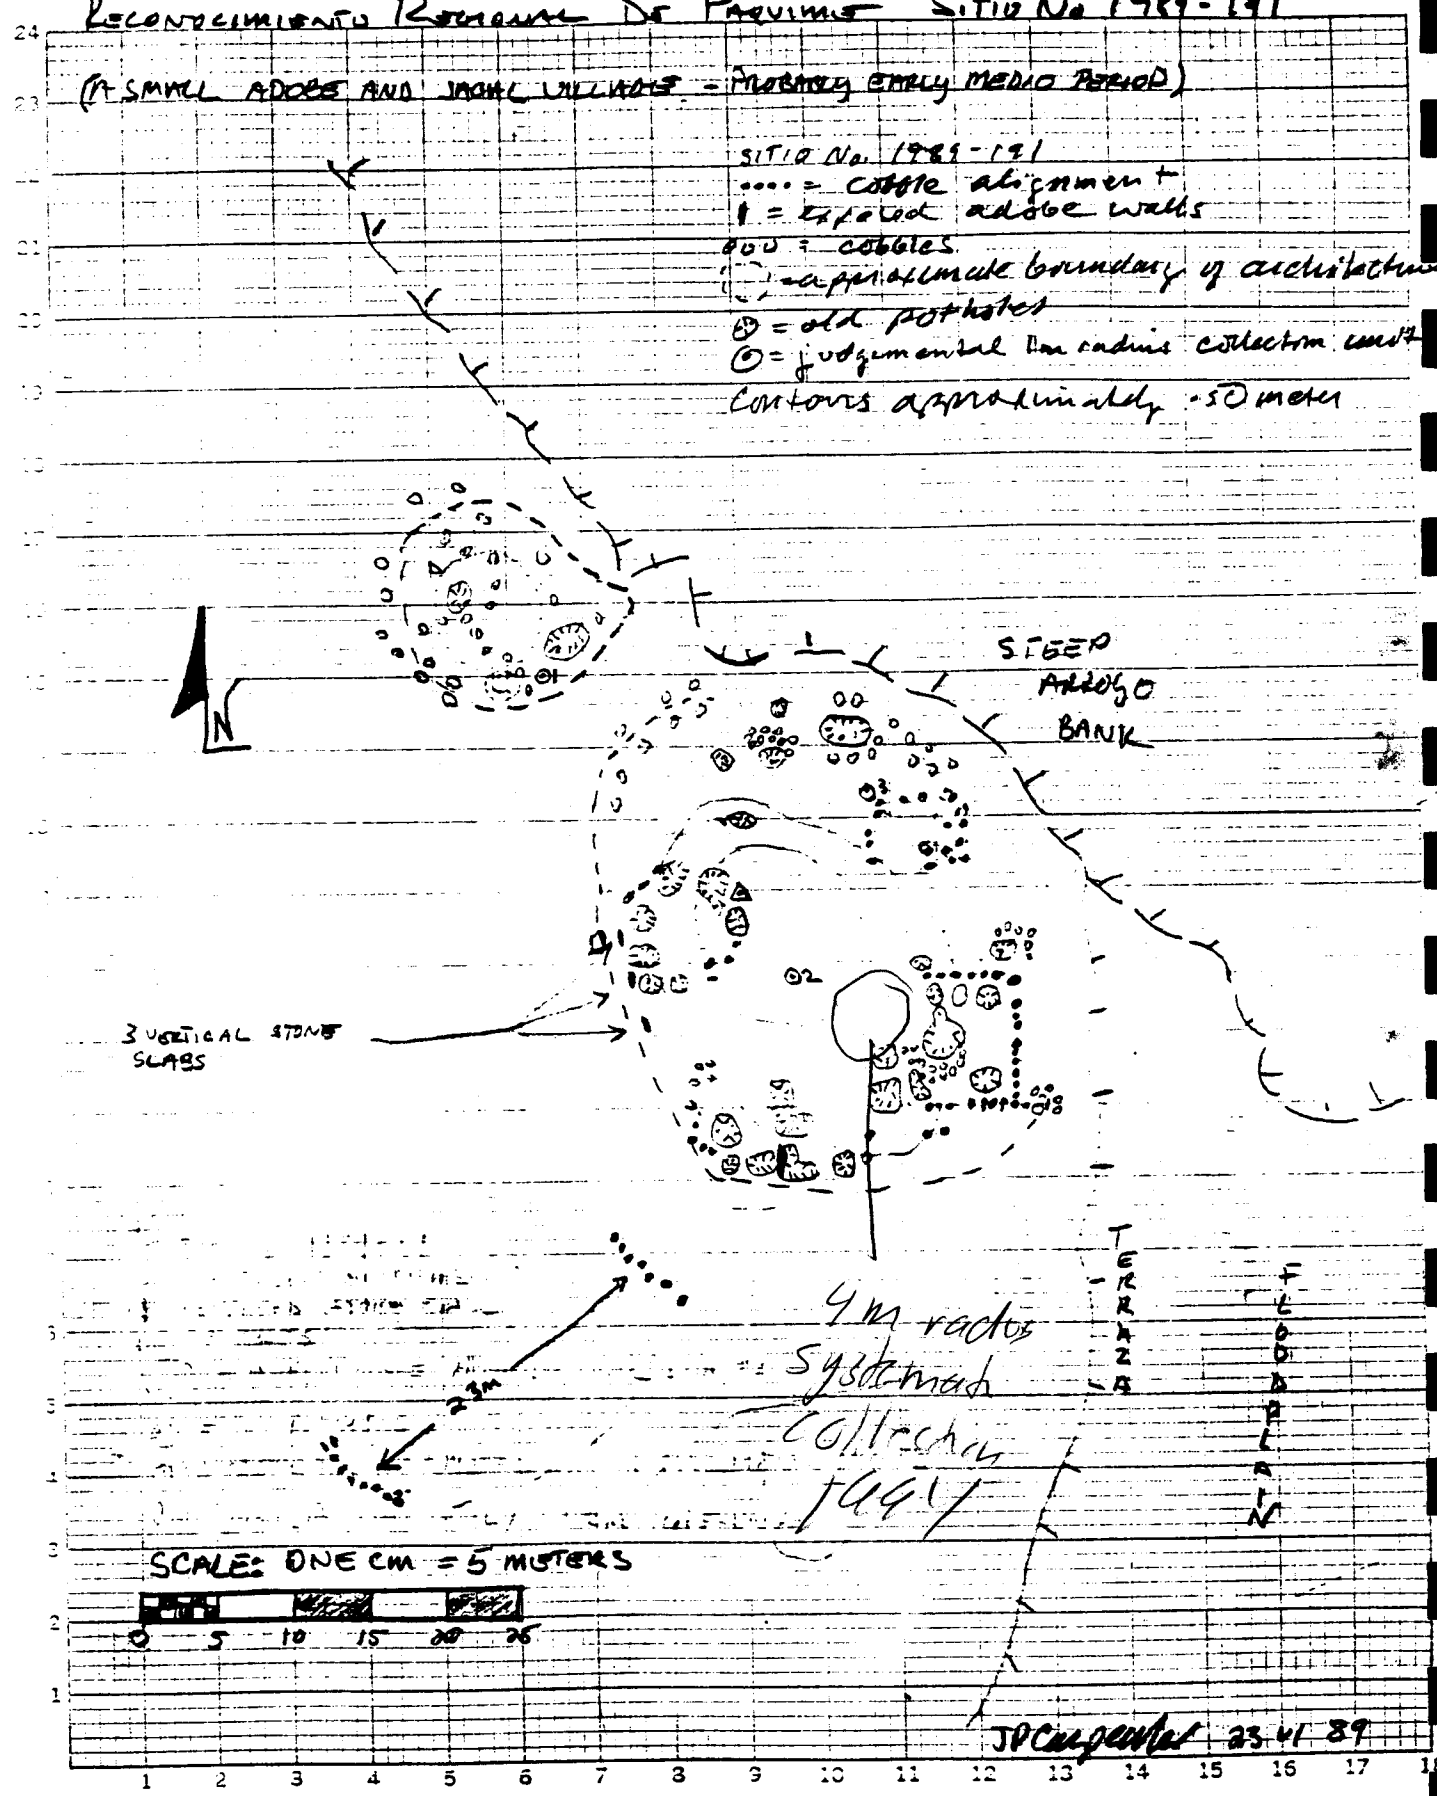 RECONOCIMIENTO REGIONAL DE PAQUIME SITIO No 1989-191
(A SMALL ADOBE AND JACAL VILLAGE - PROBABLY EARLY MEDIO PERIOD)
SITIO No. 1989-191
•••• = cobble alignment
= exposed adobe walls
ooo = cobbles
= approximate boundary of architectur
= old potholes
= judgemental 1m radius collection unit
Contours approximately .50 meter
STEEP
ARROYO
BANK
N
1
3
1
2
3 VERTICAL STONE
SLABS
TERRAZA
FLOODPLAIN
23m
4m radius
Systematic
Collection
1991
SCALE: ONE cm = 5 METERS
0 5 10 15 20 25
JPCarpenter 23 VI 89
24
23
21
2
1
1 2 3 4 5 6 7 8 9 10 11 12 13 14 15 16 17 18